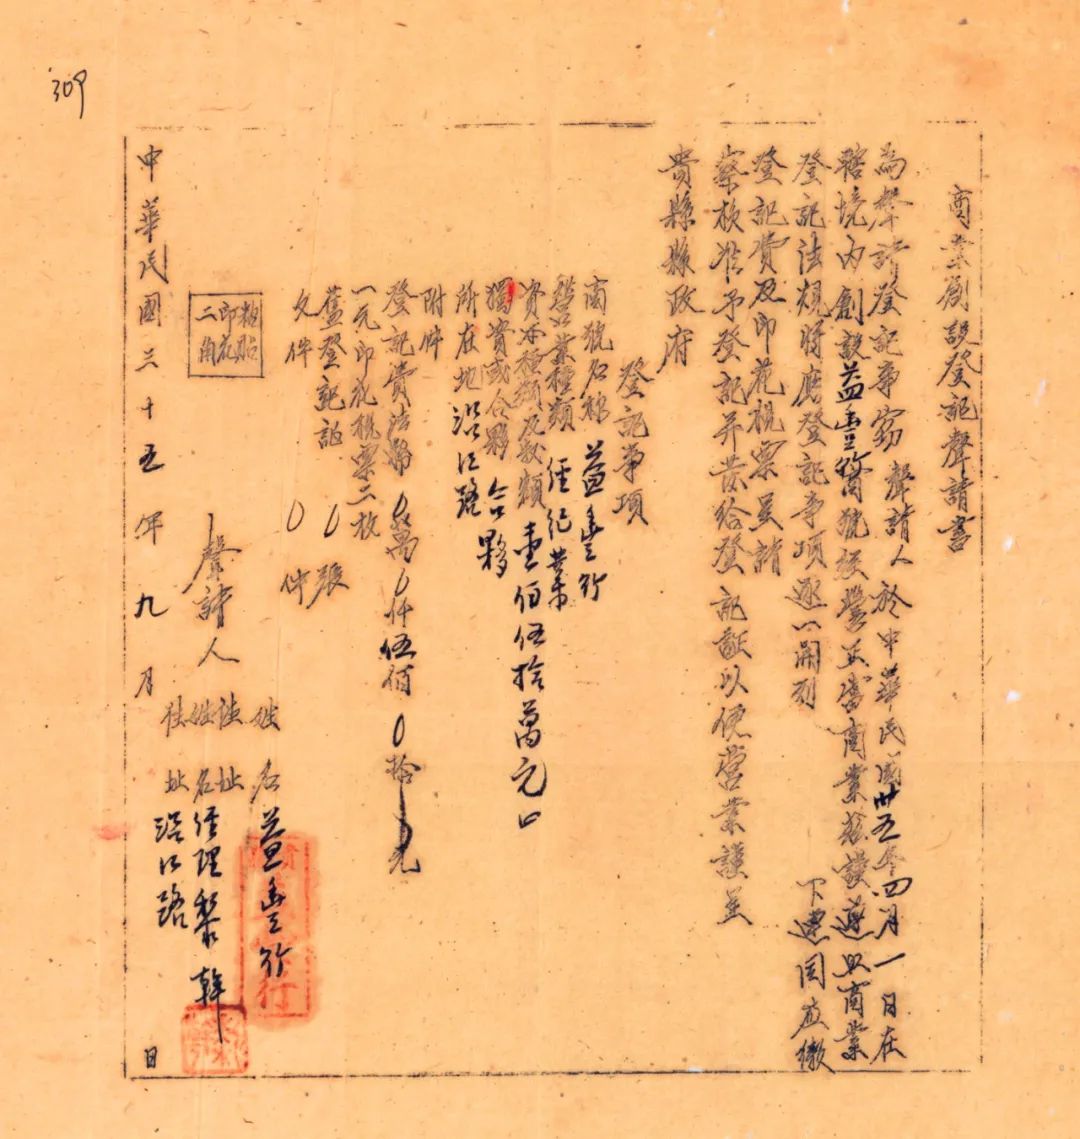 309
商業創設登記聲請書
為聲請登記事窃聲請人於中華民國卅五年四月一日在
轄境內創設益豐行商號經營正當商業茲謹遵照商業
登記法規將應登記事項逐一開列下連同應繳
登記費及印花稅票呈請
察核准予登記并發給登記証以便營業謹呈
貴縣縣政府
登記事項
商號名称 益豐行
營業種類 經紀業
資本種類及数額 壹佰伍拾萬元正
獨資或合夥 合夥
所在地 沿江路
附件
登記費法幣 0萬0仟伍佰0拾0元
一元印花税票二枚
舊登記証 0張
文件 0件
聲請人
姓名 益豐行
住址
姓名 經理黎幹
住址 沿江路
粘貼
印花
二角
中華民國三十五年九月 日